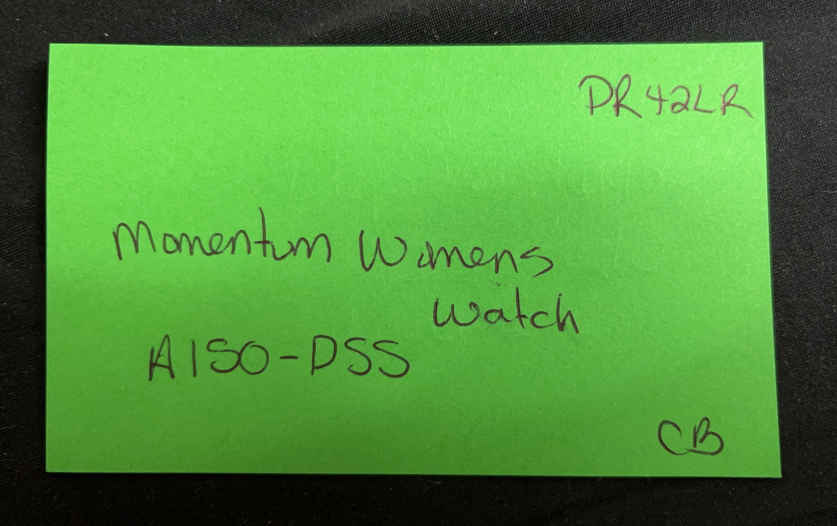 DR42LR
Momentum Womens
Watch
A150-DSS
CB